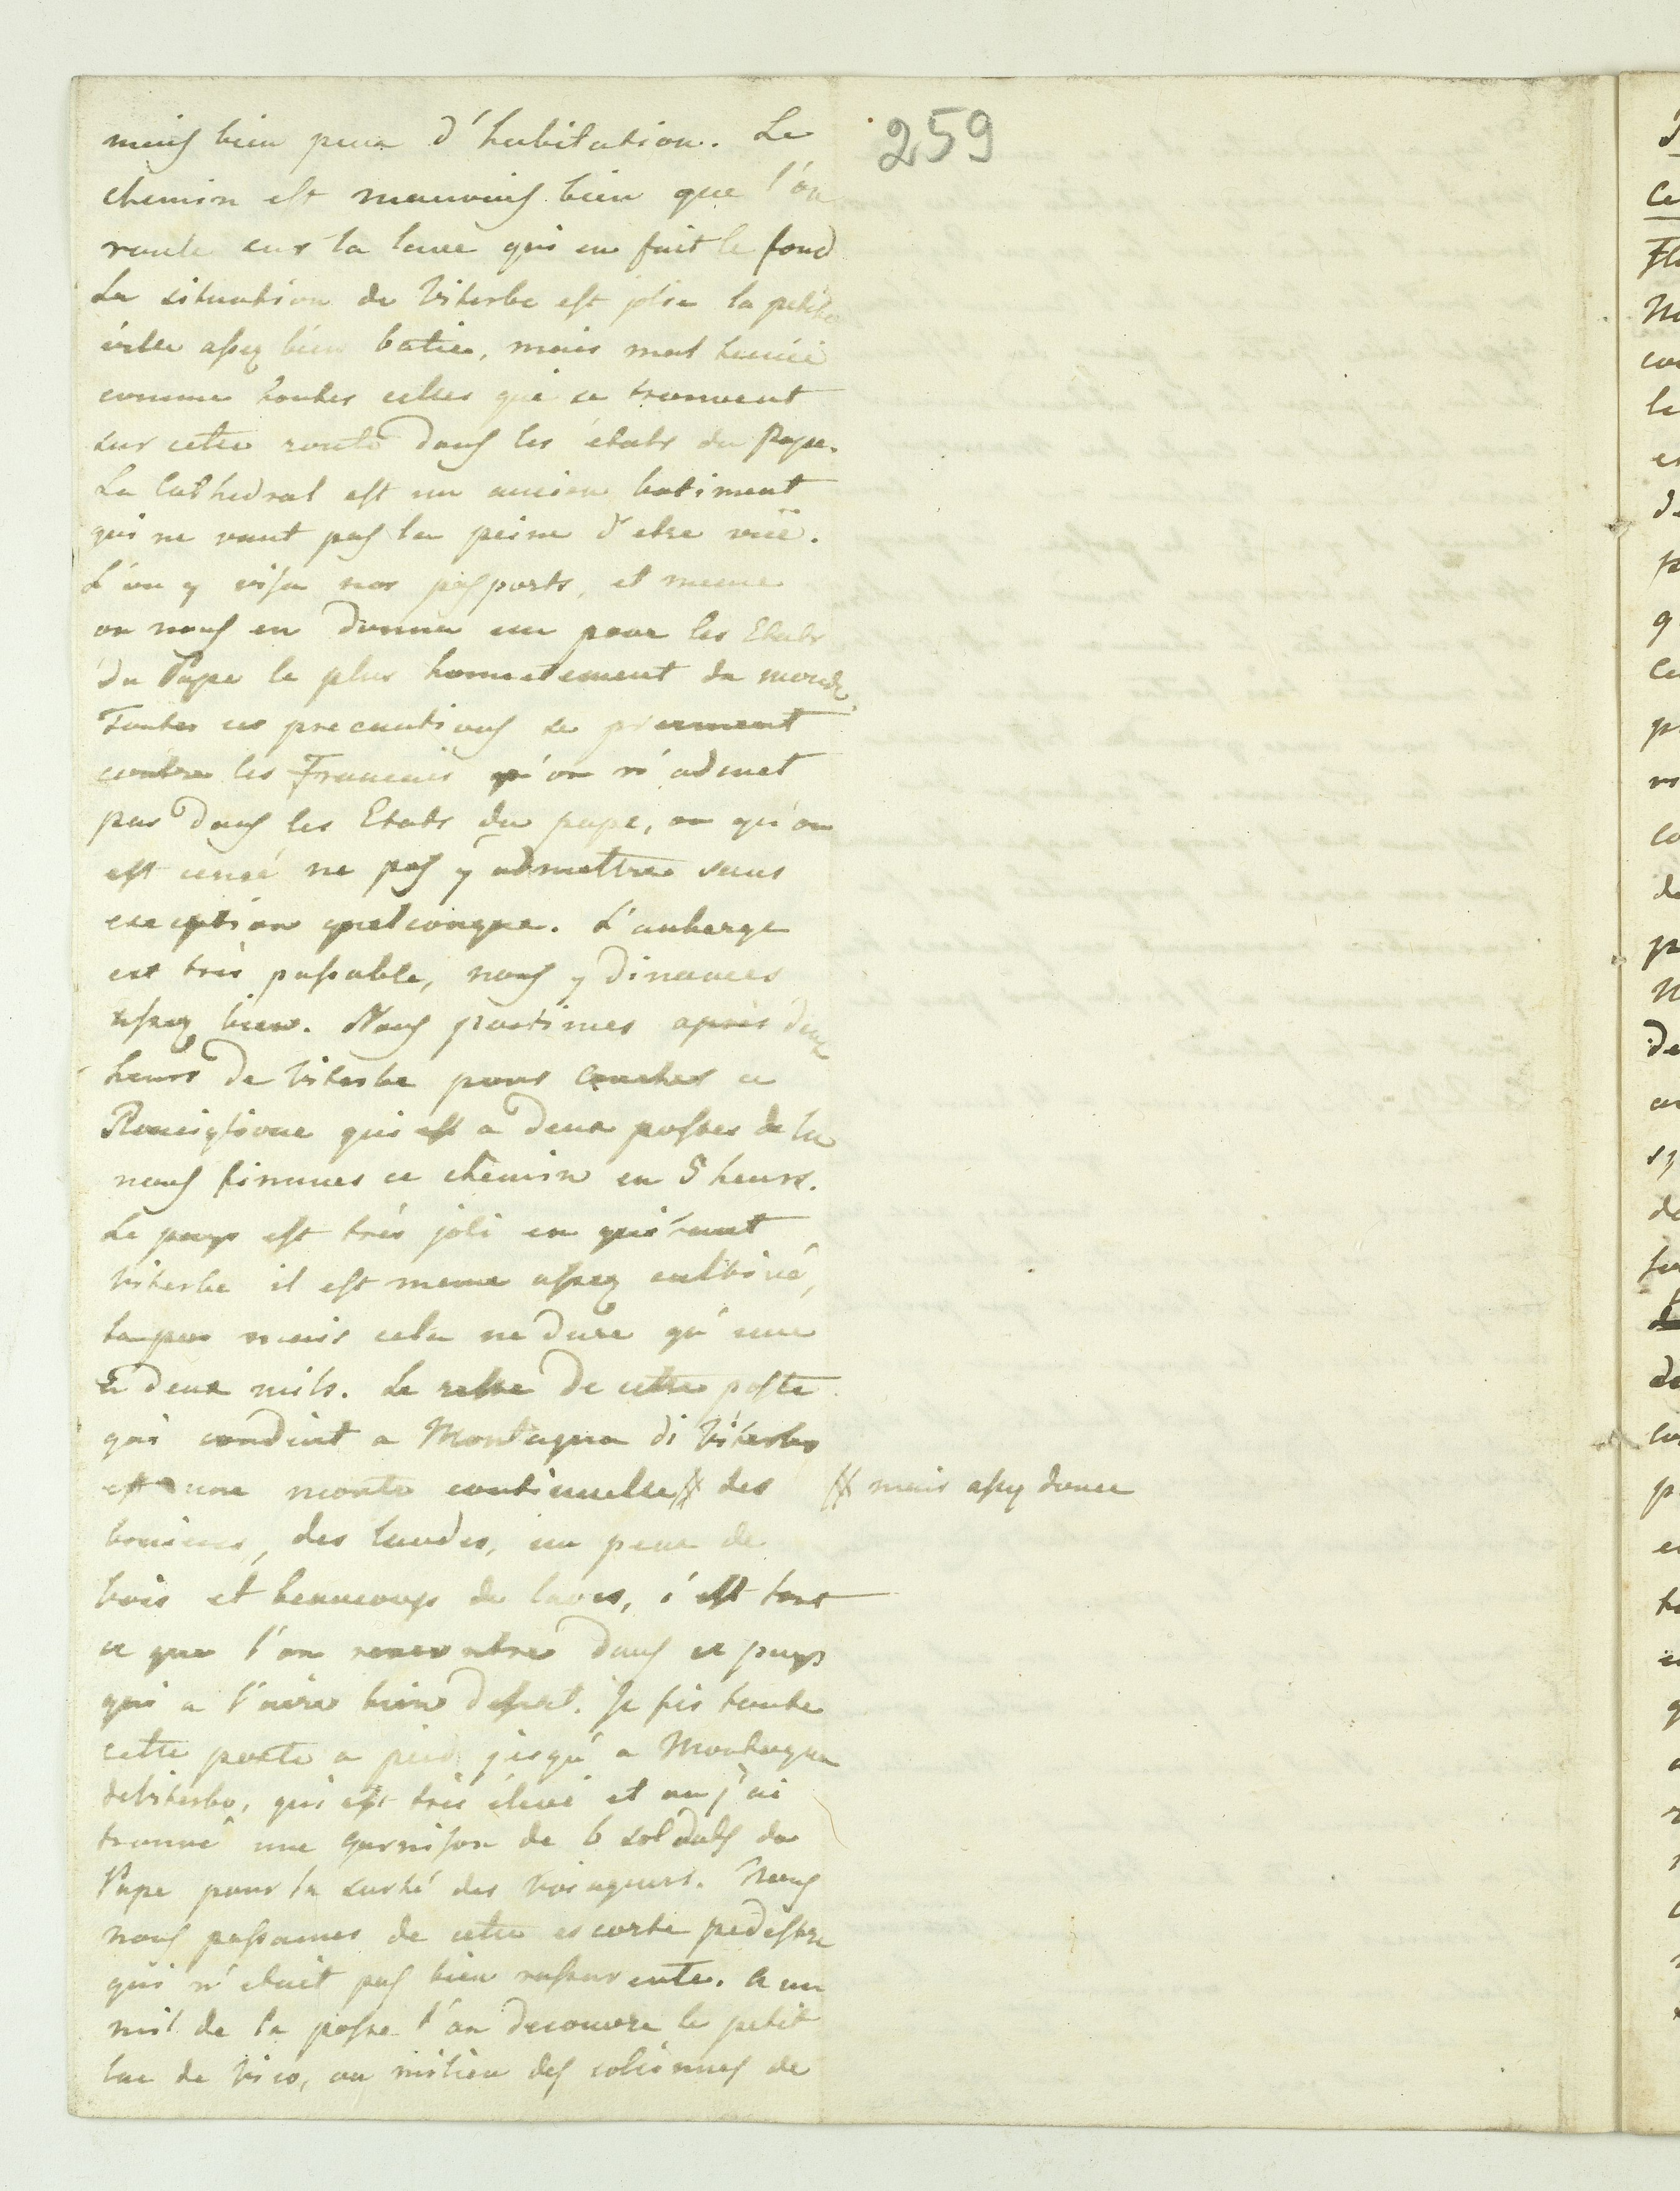 259
mais bien peux d'habitation. Le
chemin est mauvais bien que l'on
roule sur la lave qui en fait le fond
La situation de Viterbe est jolie la petite
ville assez bien batie, mais mal tenue
comme toutes celles qui se trouvent
sur cette route dans les états du Pape.
La Cathedral est un ancien batiment
qui ne vaut pas la peine d'etre vuë.
L'on y visa nos passports, et meme
on nous en donna un pour les Etats
du Pape le plus honnetement du monde,
Toutes ces precautions se prennent
contre les Francais qu'on n'admet
pas dans les Etats du pape, ou qu'on
est censé ne pas y admettre sans
exception quelconque. L'auberge
est très passable, nous y dinames
assez bien. Nous partimes après deux
heurs de Viterbe pour coucher a
Ronciglione qui est a deux postes de la
nous finmes ce chemin en 5 heurs.
Le pays est très joli en quitant
Viterbe il est meme assez cultivé,
mais cela ne dure qu'une
a deux mils. Le reste de cette poste
qui conduit a Montagna di Viterbo
est une monte continuelle # des
# mais assez douce
des landes, un peux de
bois et beaucoup de laves, c'est tout
ce que l'on rencontre dans ce pays
qui a l'aire bien desert. Je fis toute
cette poste a pied jusqu'a Montagna
deViterbo, qui est très élevé et ou j'ai
trouvé une garnison de 6 soldats du
Pape pour la surté des voiageurs. Nous
nous passames de cette escorte pedestre
qui n'etait pas bien rassurente. A un
mil de la poste l'on decouvre le petit
lac de Vico, au milieu des collinnes de